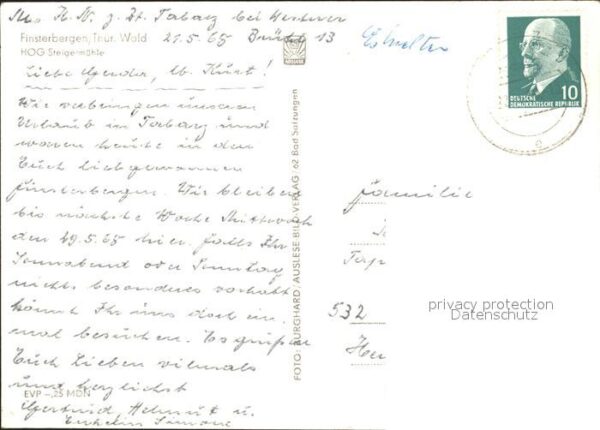 z. Zt. Tabarz bei
Finsterbergen, Thür. Wald 21.5.65 13
HOG Steigermühle
Liebe Gerda, lb. Kurt!
Wir verbringen unseren
Urlaub in Tabarz und
waren heute in dem
Euch liebgewonnenen
Finsterbergen. Wir bleiben
bis nächste Woche Mittwoch
den 29.5.65 hier. Falls Ihr
Sonnabend oder Sonntag
nichts besonderes vorhabt
könnt Ihr uns doch ein
mal besuchen. Es grüßen
Euch Lieben vielmals
und herzlichst
EVP -,25 MDN
Gertrud, Helmut u.
Enkelin Simone
FOTO: BURGHARD / AUSLESE-BILD-VERLAG · 62 Bad Salzungen
DEUTSCHE
DEMOKRATISCHE REPUBLIK
10
Familie
532
privacy protection
Datenschutz